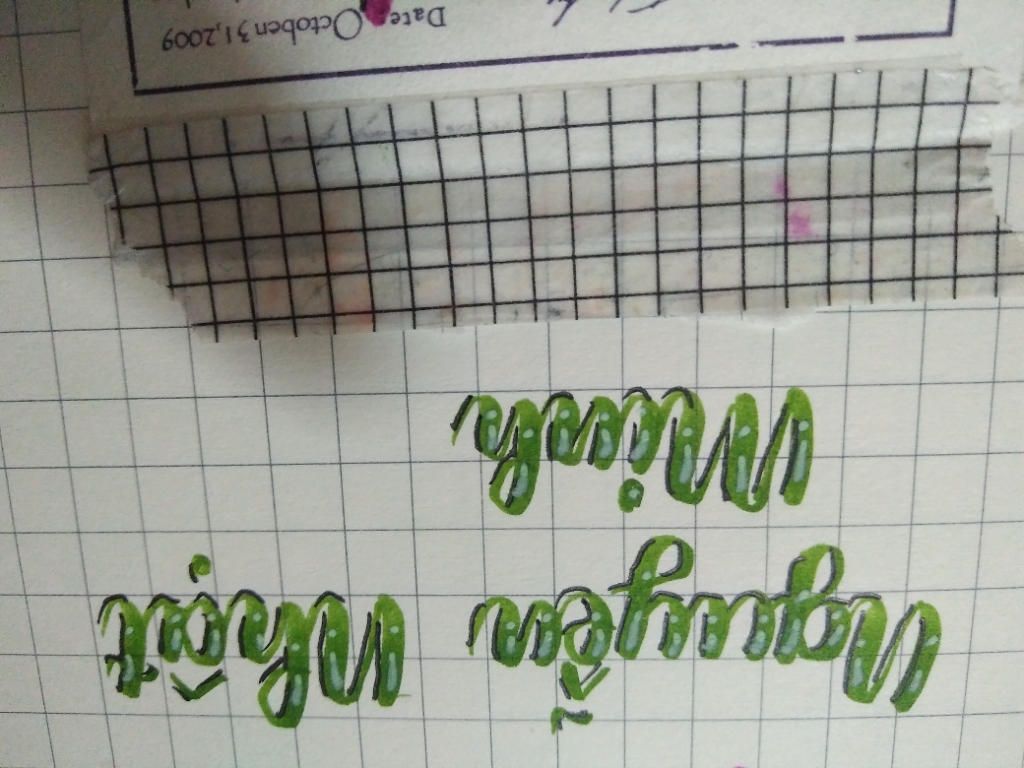 Nguyễn Nhật
Minh
Date: October 31,2009